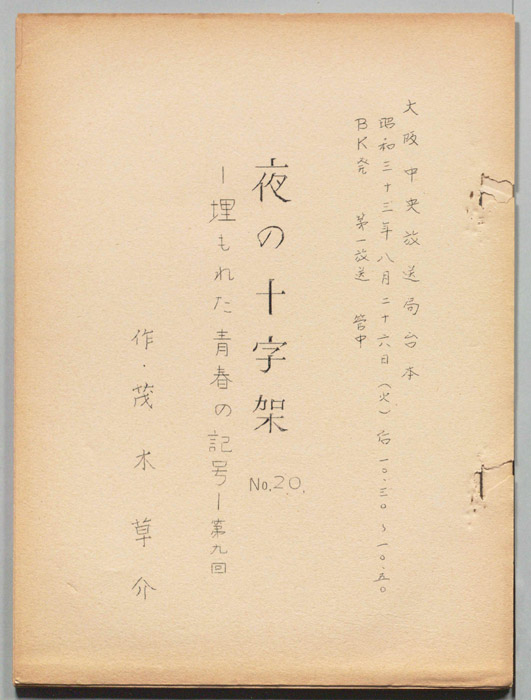 大阪中央放送局台本
昭和三十三年八月二十六日（火）后一〇.三〇〜一〇.五〇
BK発　第一放送　管中
夜の十字架
No.20.
ー埋もれた青春の記号ー第九回
作・茂木草介